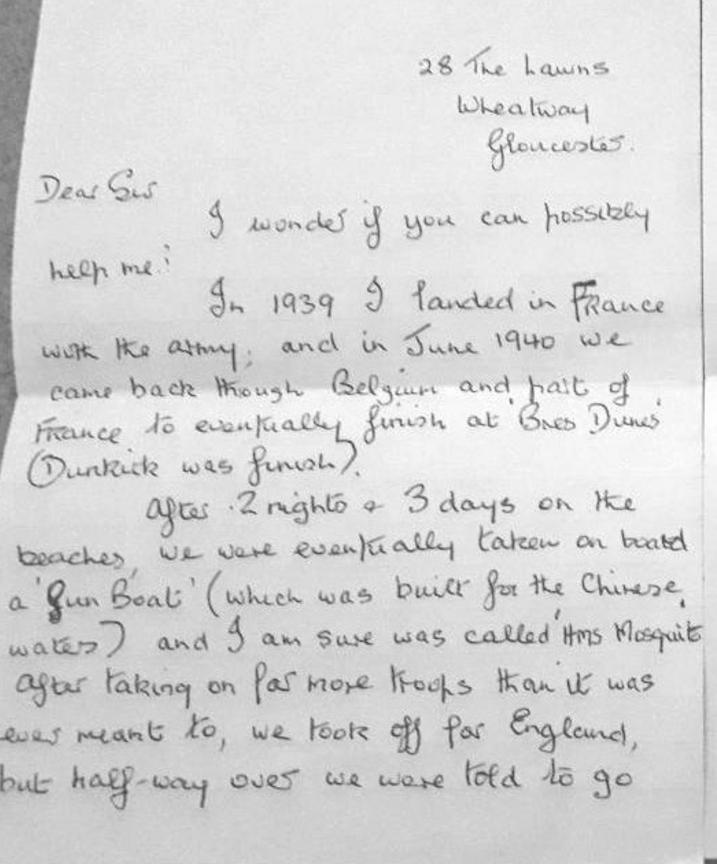 28 The Lawns
Wheatway
Gloucester.
Dear Sir
I wonder if you can possibly
help me!
In 1939 I landed in France
with the army; and in June 1940 we
came back though Belgium and part of
France to eventually finish at 'Bres Dunes'
(Dunkirk was finish).
After 2 nights & 3 days on the
beaches, we were eventually taken on board
a 'Gun Boat' (which was built for the Chinese
waters) and I am sure was called 'HMS Mosquit
After taking on far more troops than it was
ever meant to, we took off for England,
but half-way over we were told to go